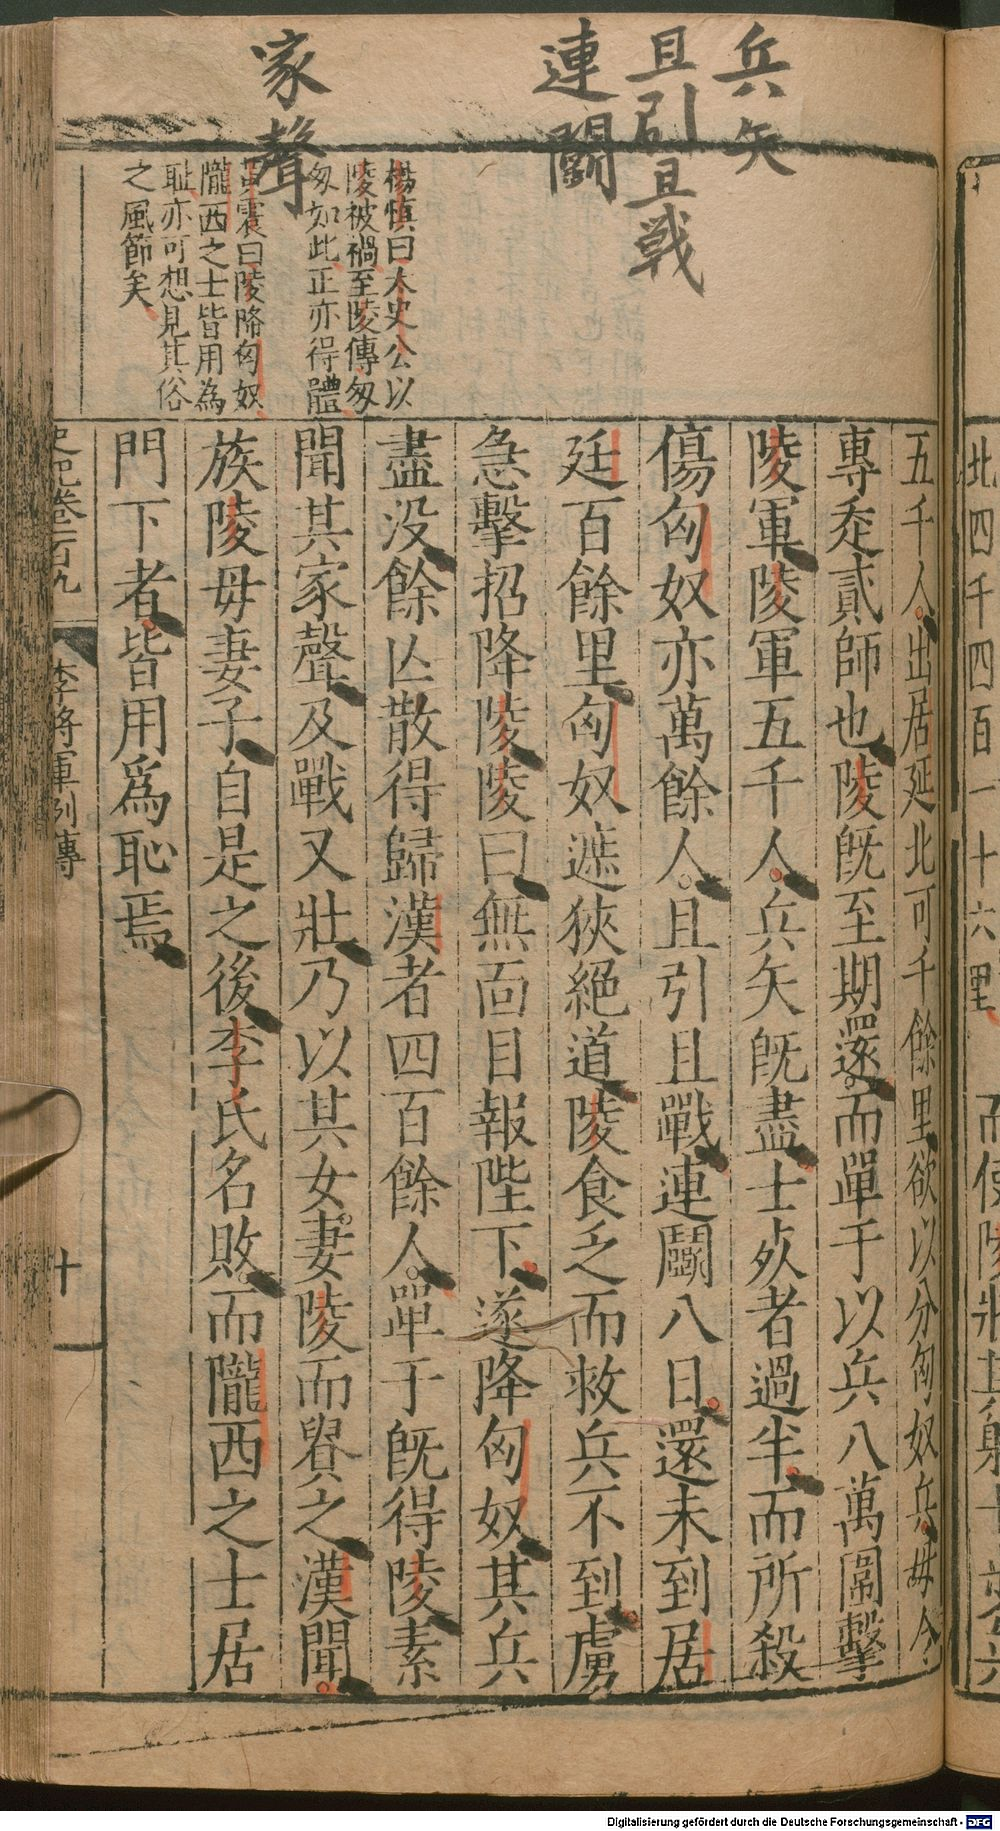 兵矢
且引且戰
連鬭
家聲
楊慎曰太史公以
陵被禍至陵傳匆
匆如此正亦得體
黃震曰陵降匈奴
隴西之士皆用為
耻亦可想見其俗
之風節矣
北四千四百一十六里
五千人出居延北可千餘里欲以分匈奴兵毋令
專走貳師也陵旣至期還而單于以兵八萬圍擊
陵軍陵軍五千人兵矢旣盡士死者過半而所殺
傷匈奴亦萬餘人且引且戰連鬭八日還未到居
延百餘里匈奴遮狹絕道陵食乏而救兵不到虜
急擊招降陵陵曰無面目報陛下遂降匈奴其兵
盡没餘亾散得歸漢者四百餘人單于旣得陵素
聞其家聲及戰又壯乃以其女妻陵而貴之漢聞
族陵母妻子自是之後李氏名敗而隴西之士居
門下者皆用爲恥焉
史記卷一百九
李將軍列傳
十
Digitalisierung gefördert durch die Deutsche Forschungsgemeinschaft - DFG